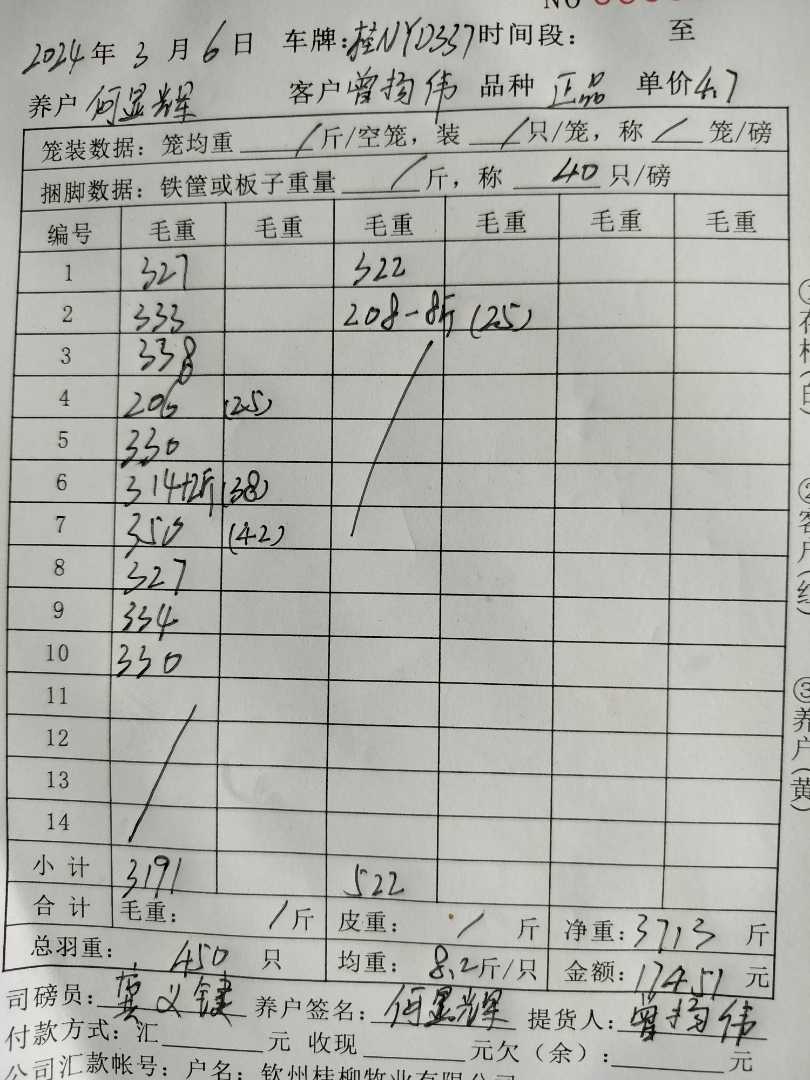 NO
2024年3月6日 车牌:桂NYD337 时间段: 至
养户 何显辉 客户 曾扬伟 品种 正品 单价 4.7
笼装数据: 笼均重 / 斤/空笼, 装 / 只/笼, 称 / 笼/磅
捆脚数据: 铁筐或板子重量 / 斤, 称 40 只/磅
编号 毛重 毛重 毛重 毛重 毛重 毛重
1 327 322
2 333 208-8斤 (25)
3 338
4 206 (25)
5 330
6 314+2斤 (38)
7 350 (42)
8 327
9 334
10 330
11
12
13
14
小计 3191 522
合计 毛重: / 斤 皮重: / 斤 净重: 3713 斤
总羽重: 450 只 均重: 8.2 斤/只 金额: 17451 元
司磅员: 义键 养户签名: 何显辉 提货人: 曾扬伟
付款方式: 汇 元 收现 元欠(余): 元
公司汇款帐号: 户名: 钦州桂柳牧业有限公司
②客户(红)
③养户(黄)